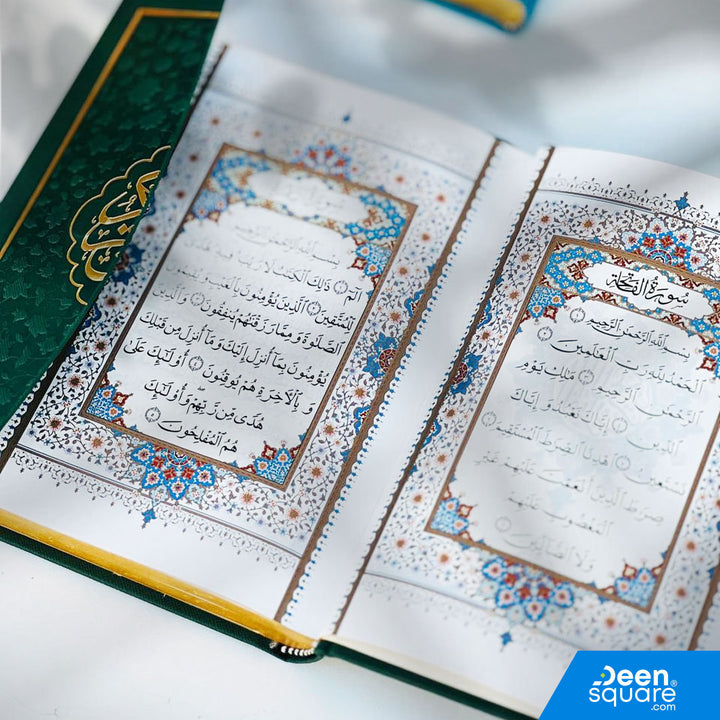 سُورَةُ الفَاتِحَة
بِسْمِ اللهِ الرَّحْمٰنِ الرَّحِيمِ
الْحَمْدُ لِلّٰهِ رَبِّ الْعَالَمِينَ
الرَّحْمٰنِ الرَّحِيمِ مَالِكِ يَوْمِ
الدِّينِ إِيَّاكَ نَعْبُدُ وَإِيَّاكَ
نَسْتَعِينُ اهْدِنَا الصِّرَاطَ الْمُسْتَقِيمَ
صِرَاطَ الَّذِينَ أَنْعَمْتَ عَلَيْهِمْ غَيْرِ
الْمَغْضُوبِ عَلَيْهِمْ
وَلَا الضَّالِّينَ
بِسْمِ اللهِ الرَّحْمٰنِ الرَّحِيمِ
الٓمٓ ذٰلِكَ الْكِتَابُ لَا رَيْبَ فِيهِ هُدًى
لِلْمُتَّقِينَ الَّذِينَ يُؤْمِنُونَ بِالْغَيْبِ وَيُقِيمُونَ
الصَّلٰوةَ وَمِمَّا رَزَقْنَاهُمْ يُنْفِقُونَ وَالَّذِينَ
يُؤْمِنُونَ بِمَا أُنْزِلَ إِلَيْكَ وَمَا أُنْزِلَ مِنْ قَبْلِكَ
وَبِالْاٰخِرَةِ هُمْ يُوقِنُونَ أُولٰئِكَ عَلٰى
هُدًى مِنْ رَبِّهِمْ وَأُولٰئِكَ
هُمُ الْمُفْلِحُونَ
Deen
square®
.com